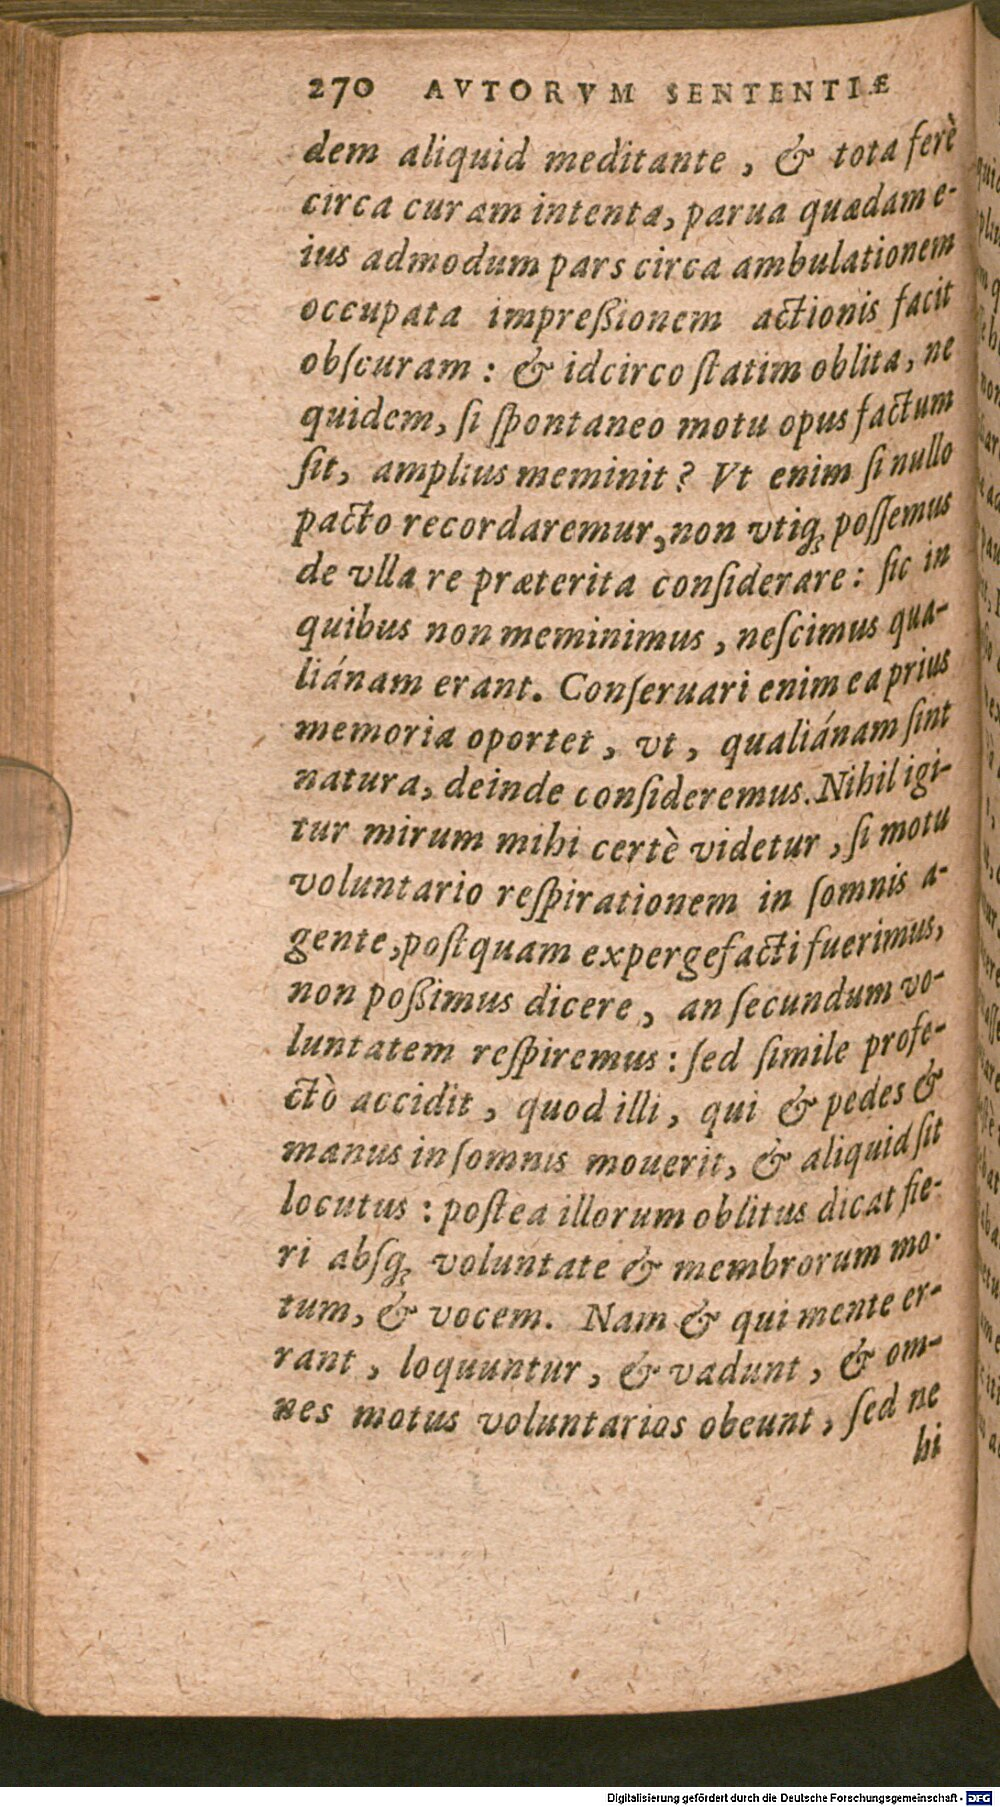 270 AVTORVM SENTENTIÆ
dem aliquid meditante, & tota ferè
circa curam intenta, parua quædam e-
ius admodum pars circa ambulationem
occupata impreßionem actionis facit
obſcuram: & idcirco ſtatim oblita, ne
quidem, ſi ſpontaneo motu opus factum
ſit, amplius meminit? Vt enim ſi nullo
pacto recordaremur, non vtiq; poſſemus
de vlla re præterita conſiderare: ſic in
quibus non meminimus, neſcimus qua-
liánam erant. Conſeruari enim ea prius
memoria oportet, vt, qualiánam ſint
natura, deinde conſideremus. Nihil igi-
tur mirum mihi certè videtur, ſi motu
voluntario reſpirationem in ſomnis a-
gente, poſtquam expergefacti fuerimus,
non poßimus dicere, an ſecundum vo-
luntatem reſpiremus: ſed ſimile profe-
ctò accidit, quod illi, qui & pedes &
manus in ſomnis mouerit, & aliquid ſit
locutus: poſtea illorum oblitus dicat fie-
ri abſq; voluntate & membrorum mo-
tum, & vocem. Nam & qui mente er-
rant, loquuntur, & vadunt, & om-
nes motus voluntarios obeunt, ſed ne
hi
Digitalisierung gefördert durch die Deutsche Forschungsgemeinschaft - DFG